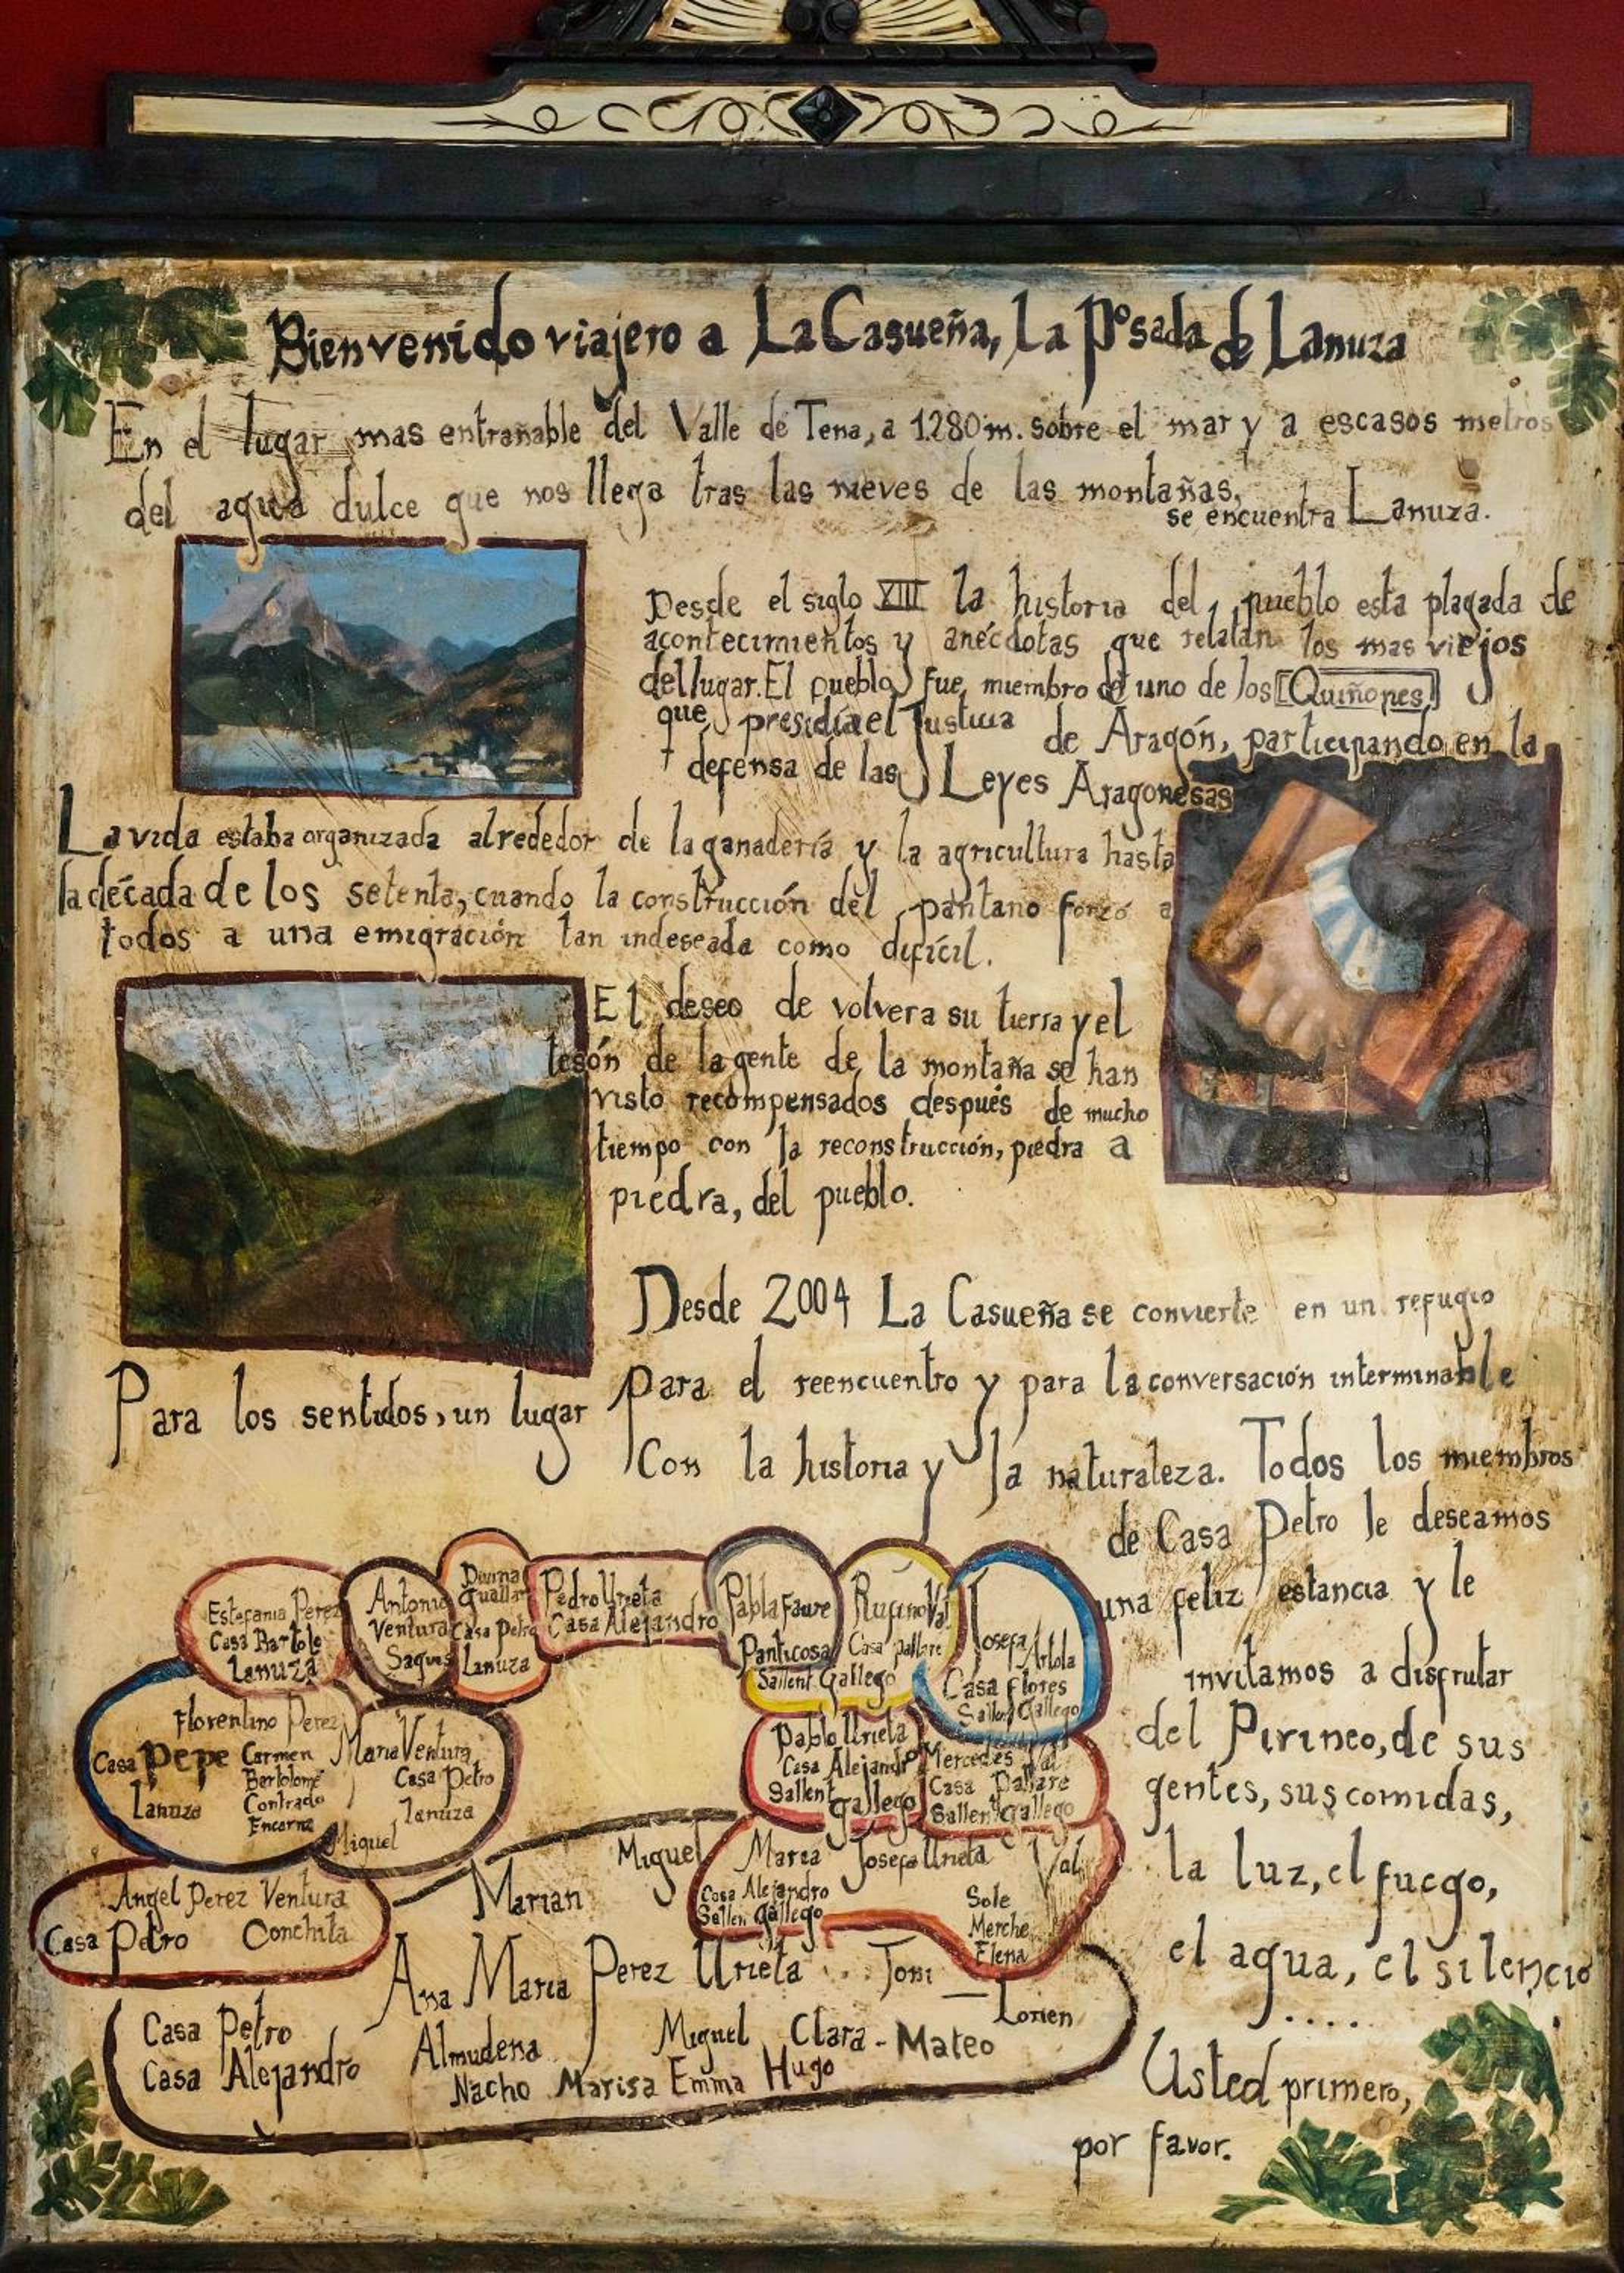 Bienvenido viajero a La Casueña, La Posada de Lanuza
En el lugar mas entrañable del Valle de Tena, a 1.280 m. sobre el mar y a escasos metros
del agua dulce que nos llega tras las nieves de las montañas,
se encuentra Lanuza.
Desde el siglo XIII la historia del pueblo esta plagada de
acontecimientos y anécdotas que relatan los mas viejos
del lugar. El pueblo fue miembro de uno de los [Quiñones]
que presidía el Justicia de Aragón, participando en la
defensa de las Leyes Aragonesas
La vida estaba organizada alrededor de la ganadería y la agricultura hasta
la década de los setenta, cuando la construcción del pantano forzó a
todos a una emigración tan indeseada como difícil.
El deseo de volver a su tierra y el
tesón de la gente de la montaña se han
visto recompensados después de mucho
tiempo con la reconstrucción, piedra a
piedra, del pueblo.
Desde 2004 La Casueña se convierte en un refugio
Para los sentidos, un lugar para el reencuentro y para la conversación interminable
Con la historia y la naturaleza. Todos los miembros
de Casa Petro le deseamos
una feliz estancia y le
invitamos a disfrutar
del Pirineo, de sus
gentes, sus comidas,
la luz, el fuego,
el agua, el silencio
.....
Usted primero,
por favor.
Estefania Perez
Casa Bartolo
Lanuza
Antonio
Ventura
Saques
Divina
Guallar
Casa Petro
Lanuza
Pedro Urieta
Casa Alejandro
Pabla Faure
Panticosa
Rufino Val
Casa Pallare
Sallent Gallego
Josefa Artola
Casa Flores
Sallent Gallego
Florentino Perez
Casa Pepe
Lanuza
Carmen
Bartolomé
Contrado
Encarna
Miguel
Maria Ventura
Casa Petro
Lanuza
Pablo Urieta
Casa Alejandro
Sallent Gallego
Mercedes Val
Casa Pallare
Sallent Gallego
Angel Perez Ventura
Casa Petro Conchita
Marian
Miguel
Maria Josefa Urieta Val
Casa Alejandro
Sallen Gallego
Sole
Merche
Elena
Ana Maria Perez Urieta .. Toni
Lorien
Casa Petro
Casa Alejandro
Almudena Miguel Clara - Mateo
Nacho Marisa Emma Hugo